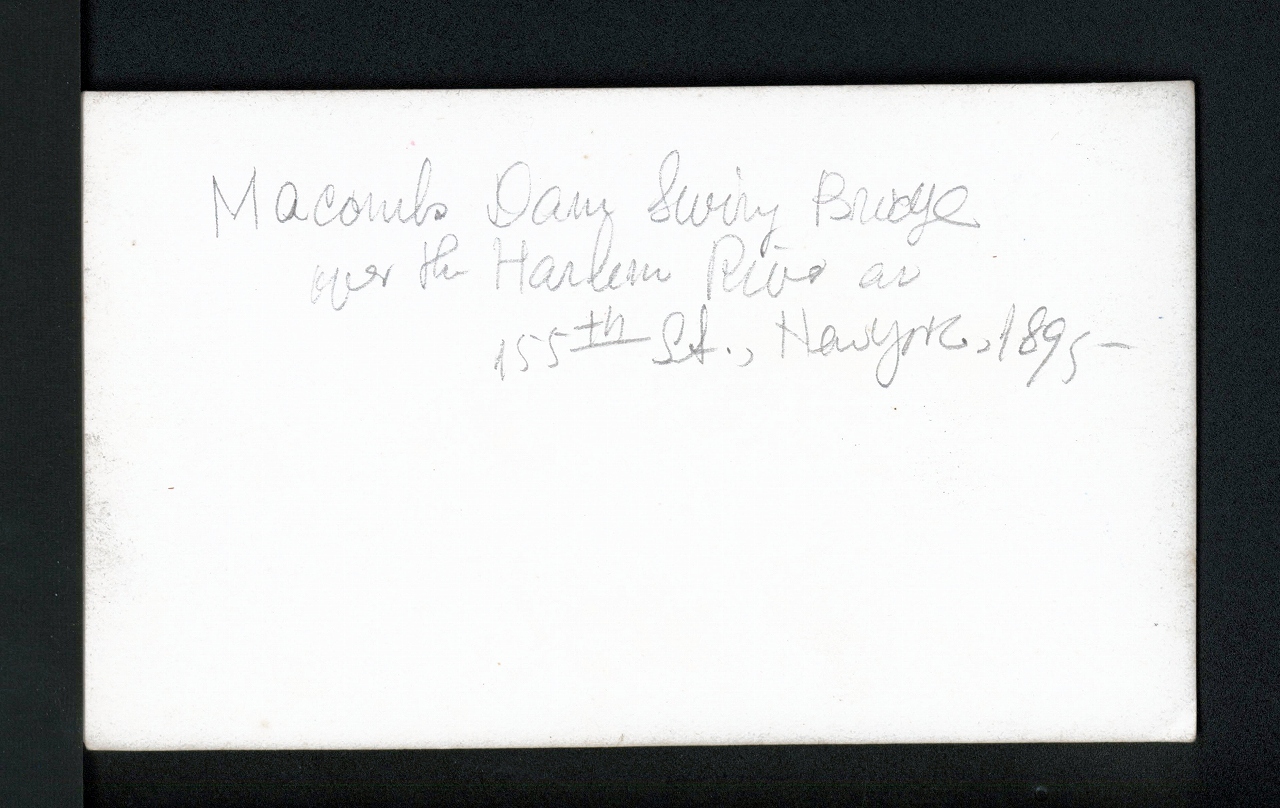 Macombs Dam Swing Bridge
over the Harlem River at
155th St., New York, 1895